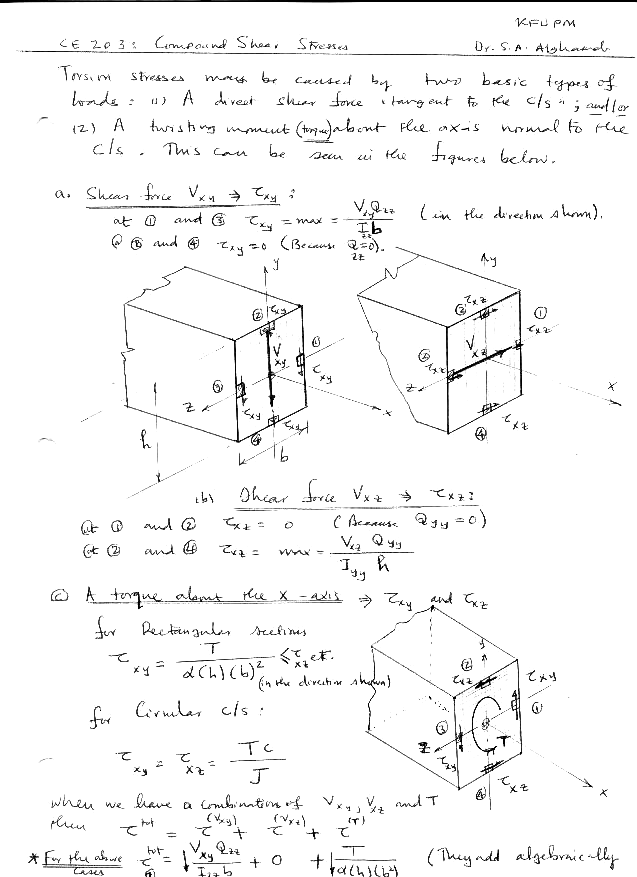 KFUPM
CE 203: Compound Shear Stresses Dr. S. A. Alghamdi
Torsion stresses may be caused by two basic types of
loads: (1) A direct shear force "tangent to the c/s"; and/or
(2) A twisting moment (torque) about the axis normal to the
c/s. This can be seen in the figures below.
a. Shear force Vxy ⇒ τxy :
at ① and ③ τxy = max = Vxy Qzz / Izz b (in the direction shown).
@ ② and ④ τxy = 0 (Because Qzz = 0).
y
② τxy
Vxy
①
τxy
③
z
τxy
x
τxy
④
h
b
y
τxz
②
①
τxz
Vxz
③
τxz
z
x
④
τxz
(b) Shear force Vxz ⇒ τxz:
at ① and ② τxz = 0 (Because Qyy = 0)
at ② and ④ τxz = max = Vxz Qyy / Iyy h
(c) A torque about the x-axis ⇒ τxy and τxz
for Rectangular sections
τxy = T / α(h)(b)² ≤ τxz etc.
(in the direction shown)
for Circular c/s :
τxy = τxz = Tc / J
②
y
τxz
τxy
①
③
z
τxy
T
④
τxz
x
when we have a combination of Vxy, Vxz and T
then τ^tot = τ^(Vxy) + τ^(Vxz) + τ^(T)
* For the above cases τ^tot ① = ↓ Vxy Qzz / Izz b + 0 + ↓ T / α(h)(b²) (They add algebraically